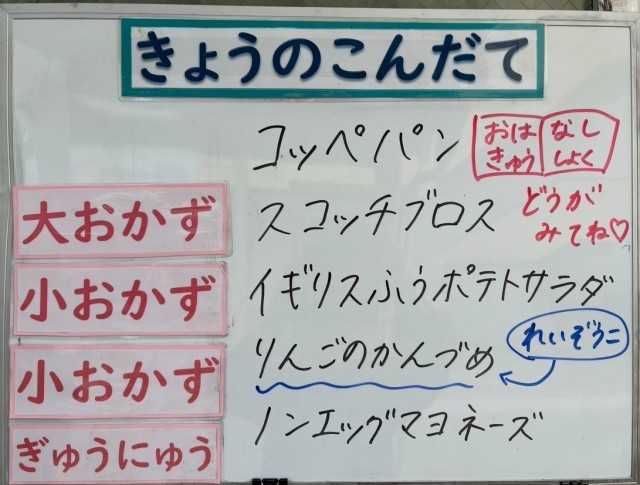 きょうのこんだて
コッペパン
おはなし
きゅうしょく
どうが
みてね♡
大おかず
スコッチブロス
小おかず
イギリスふうポテトサラダ
小おかず
りんごのかんづめ
れいぞうこ
ぎゅうにゅう
ノンエッグマヨネーズ